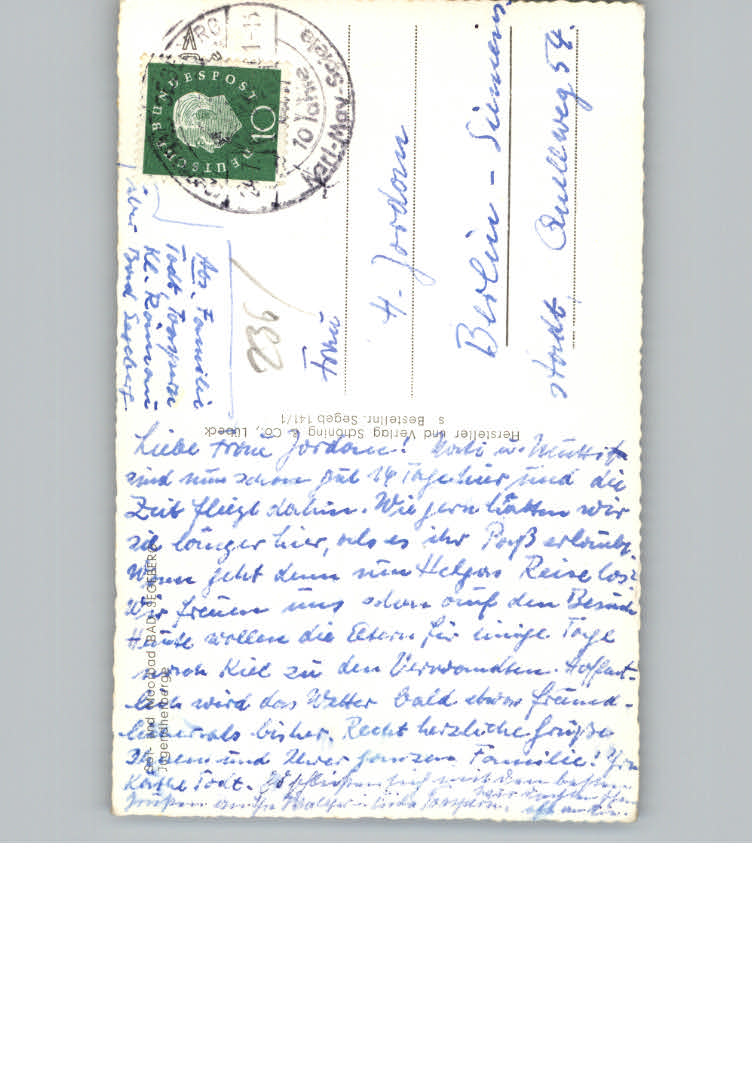 DEUTSCHE BUNDESPOST
10
10 Jahre
Karl-May-Spiele
Abs. Familie
Todt,
Kl. Rönnau
über Bad Segeberg
982
Frau
H. Jordan
Berlin - Siemens-
stadt, Quellweg 54.
Hersteller und Verlag Schöning & Co., Lübeck
s Bestellnr. Segeb 141/1
Sol- und Moorbad BAD SEGEBERG
Jugendherberge
Liebe Frau Jordan! Vati u. Mutti
sind nun schon gut 14 Tage hier und die
Zeit fliegt dahin. Wie gern hätten wir
sie länger hier, als es ihr Paß erlaubt.
Wann geht denn nun Helgas Reise los?
Wir freuen uns schon auf den Besuch
Heute wollen die Eltern für einige Tage
nach Kiel zu den Verwandten. Hoffent-
lich wird das Wetter bald etwas freund-
licher als bisher. Recht herzliche Grüße
Ihnen und Ihrer ganzen Familie! Ihre
Käthe Todt. Es schließen sich mit den besten
Grüßen an